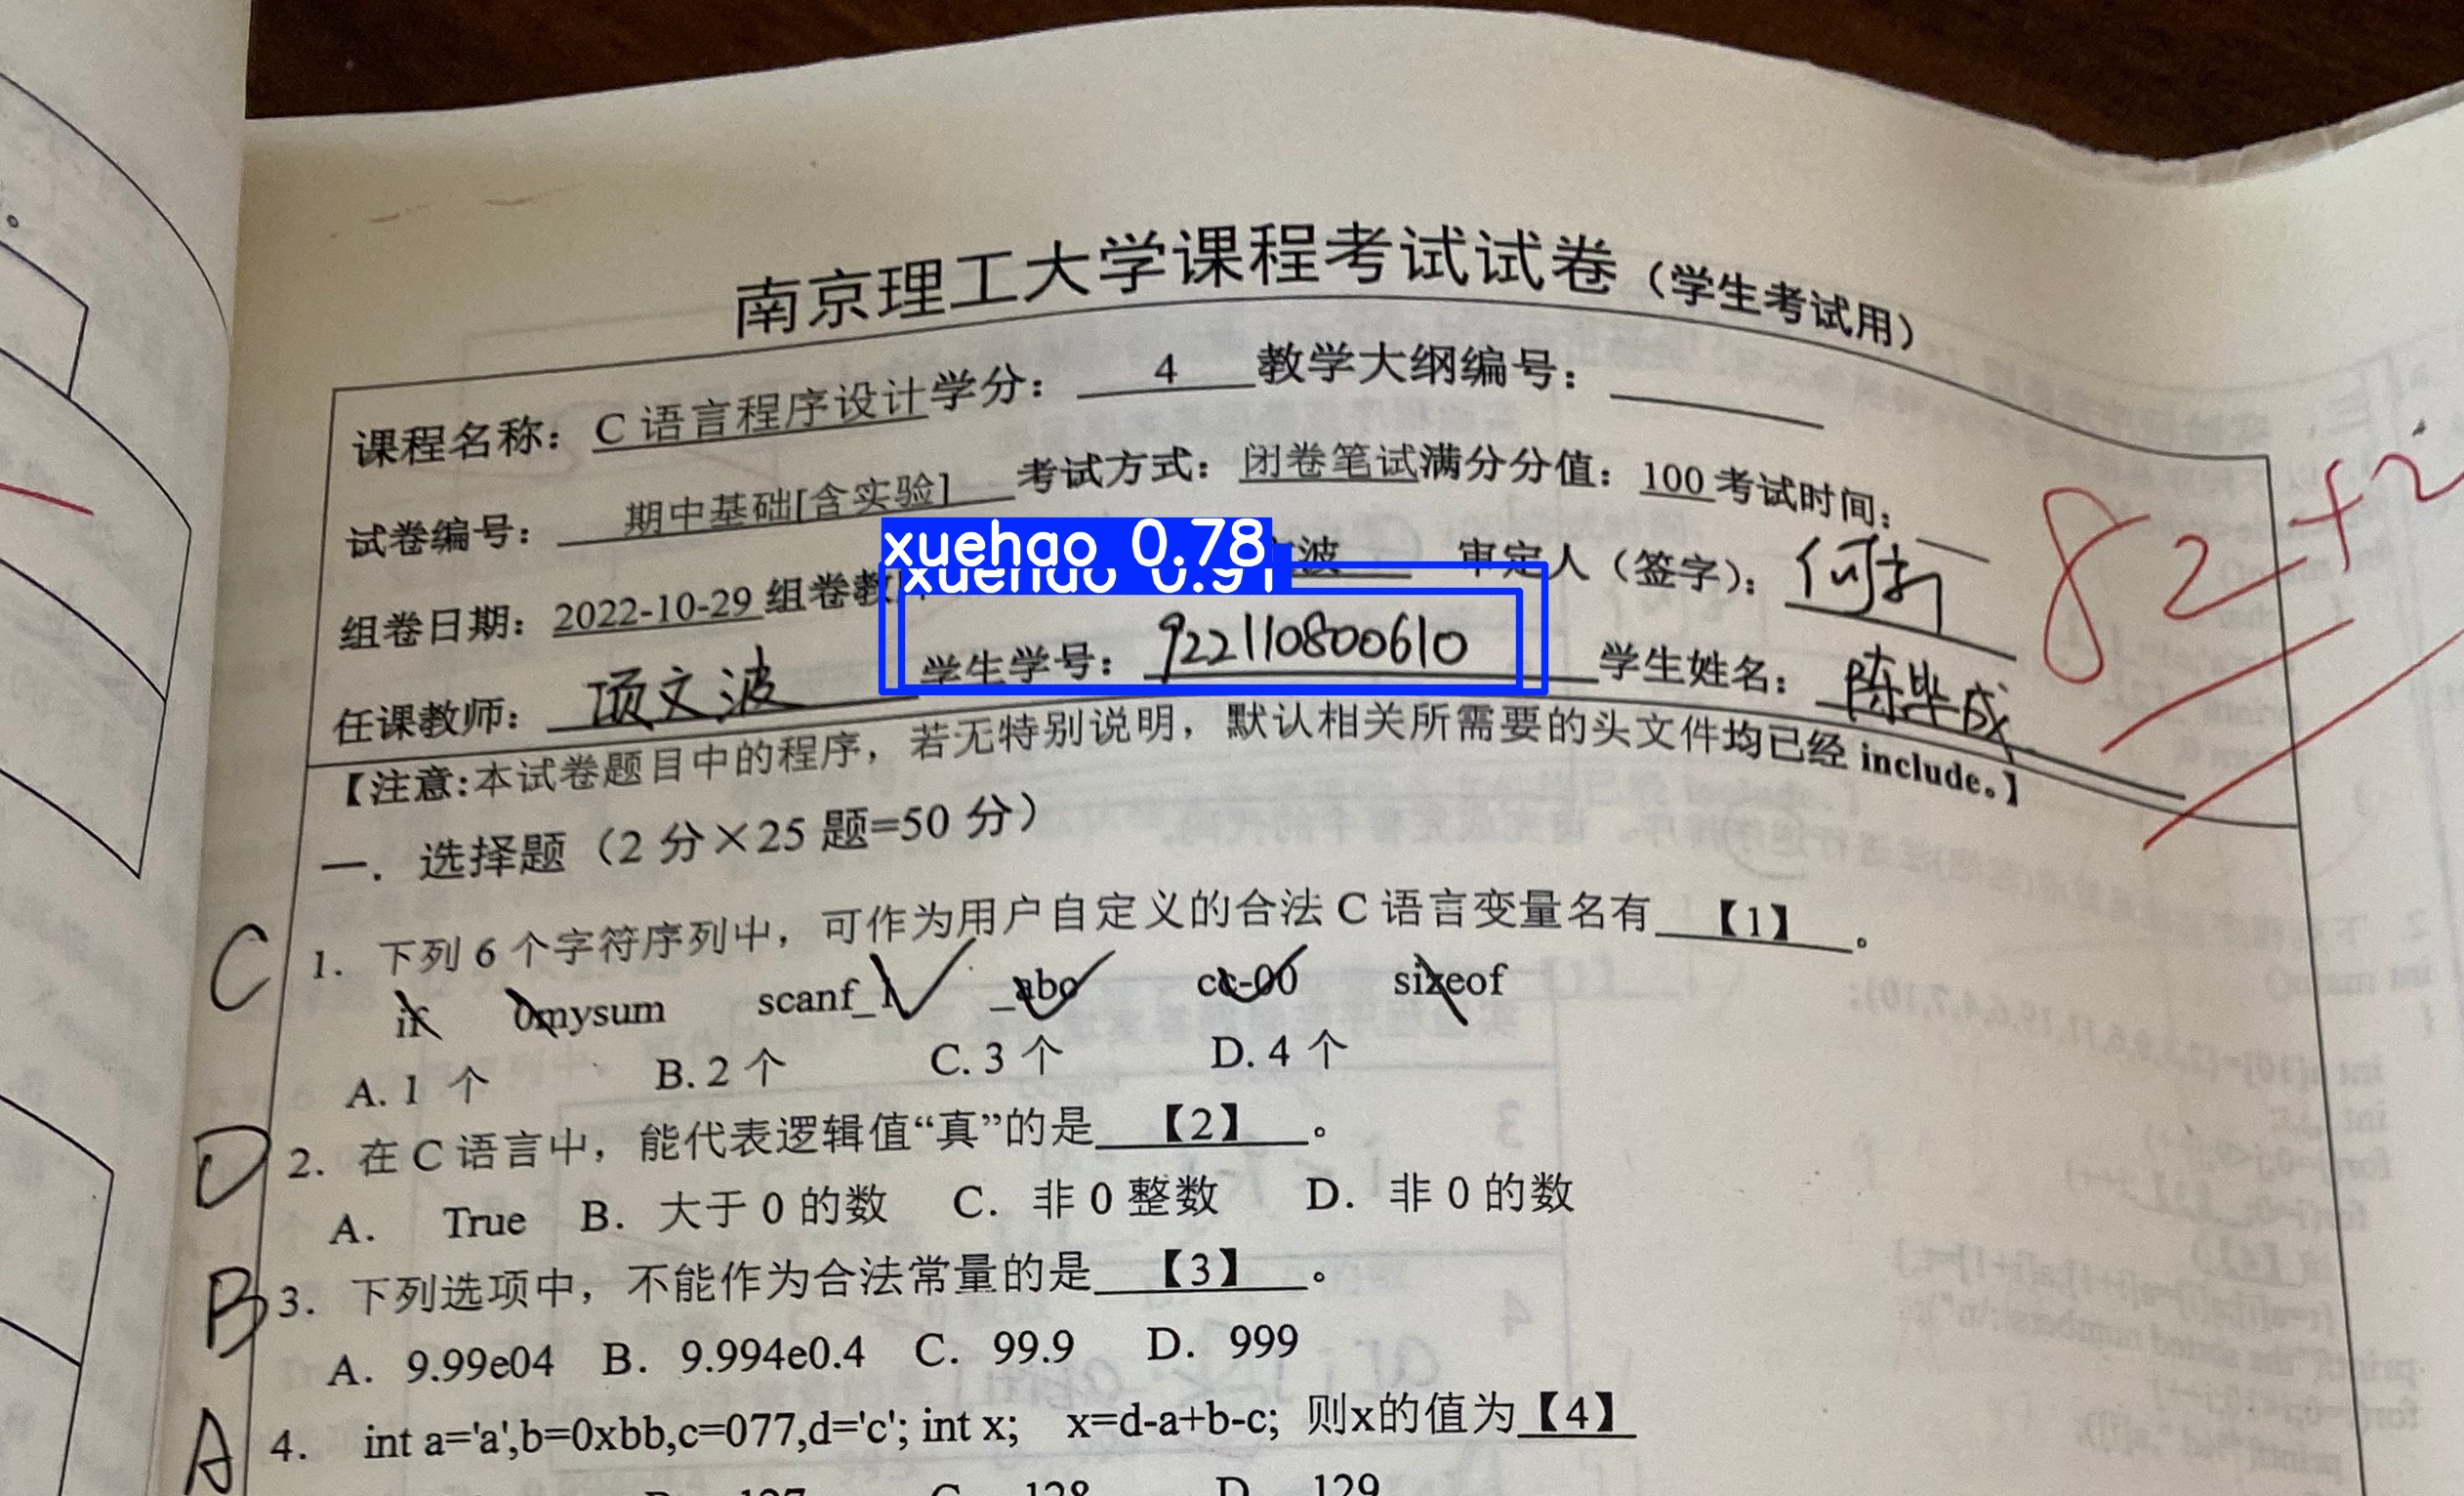 南京理工大学课程考试试卷（学生考试用）
课程名称： C 语言程序设计学分： 4 教学大纲编号：
试卷编号： 期中基础[含实验] 考试方式：闭卷笔试满分分值：100 考试时间：
xuehao 0.78
xuehao 0.91
组卷日期：2022-10-29 组卷教 波 审定人（签字）：何新
任课教师： 项文波 学生学号： 922110800610 学生姓名： 陈毕成
82+2
【注意:本试卷题目中的程序，若无特别说明，默认相关所需要的头文件均已经 include。】
一．选择题（2 分×25 题=50 分）
C 1. 下列 6 个字符序列中，可作为用户自定义的合法 C 语言变量名有 【1】 。
if 0mysum scanf_1 _abc cc-00 sizeof
A. 1 个 B. 2 个 C. 3 个 D. 4 个
D 2. 在 C 语言中，能代表逻辑值“真”的是 【2】 。
A. True B. 大于 0 的数 C. 非 0 整数 D. 非 0 的数
B 3. 下列选项中，不能作为合法常量的是 【3】 。
A. 9.99e04 B. 9.994e0.4 C. 99.9 D. 999
A 4. int a='a',b=0xbb,c=077,d='c'; int x; x=d-a+b-c; 则x的值为【4】
B. 127 C. 128 D. 129